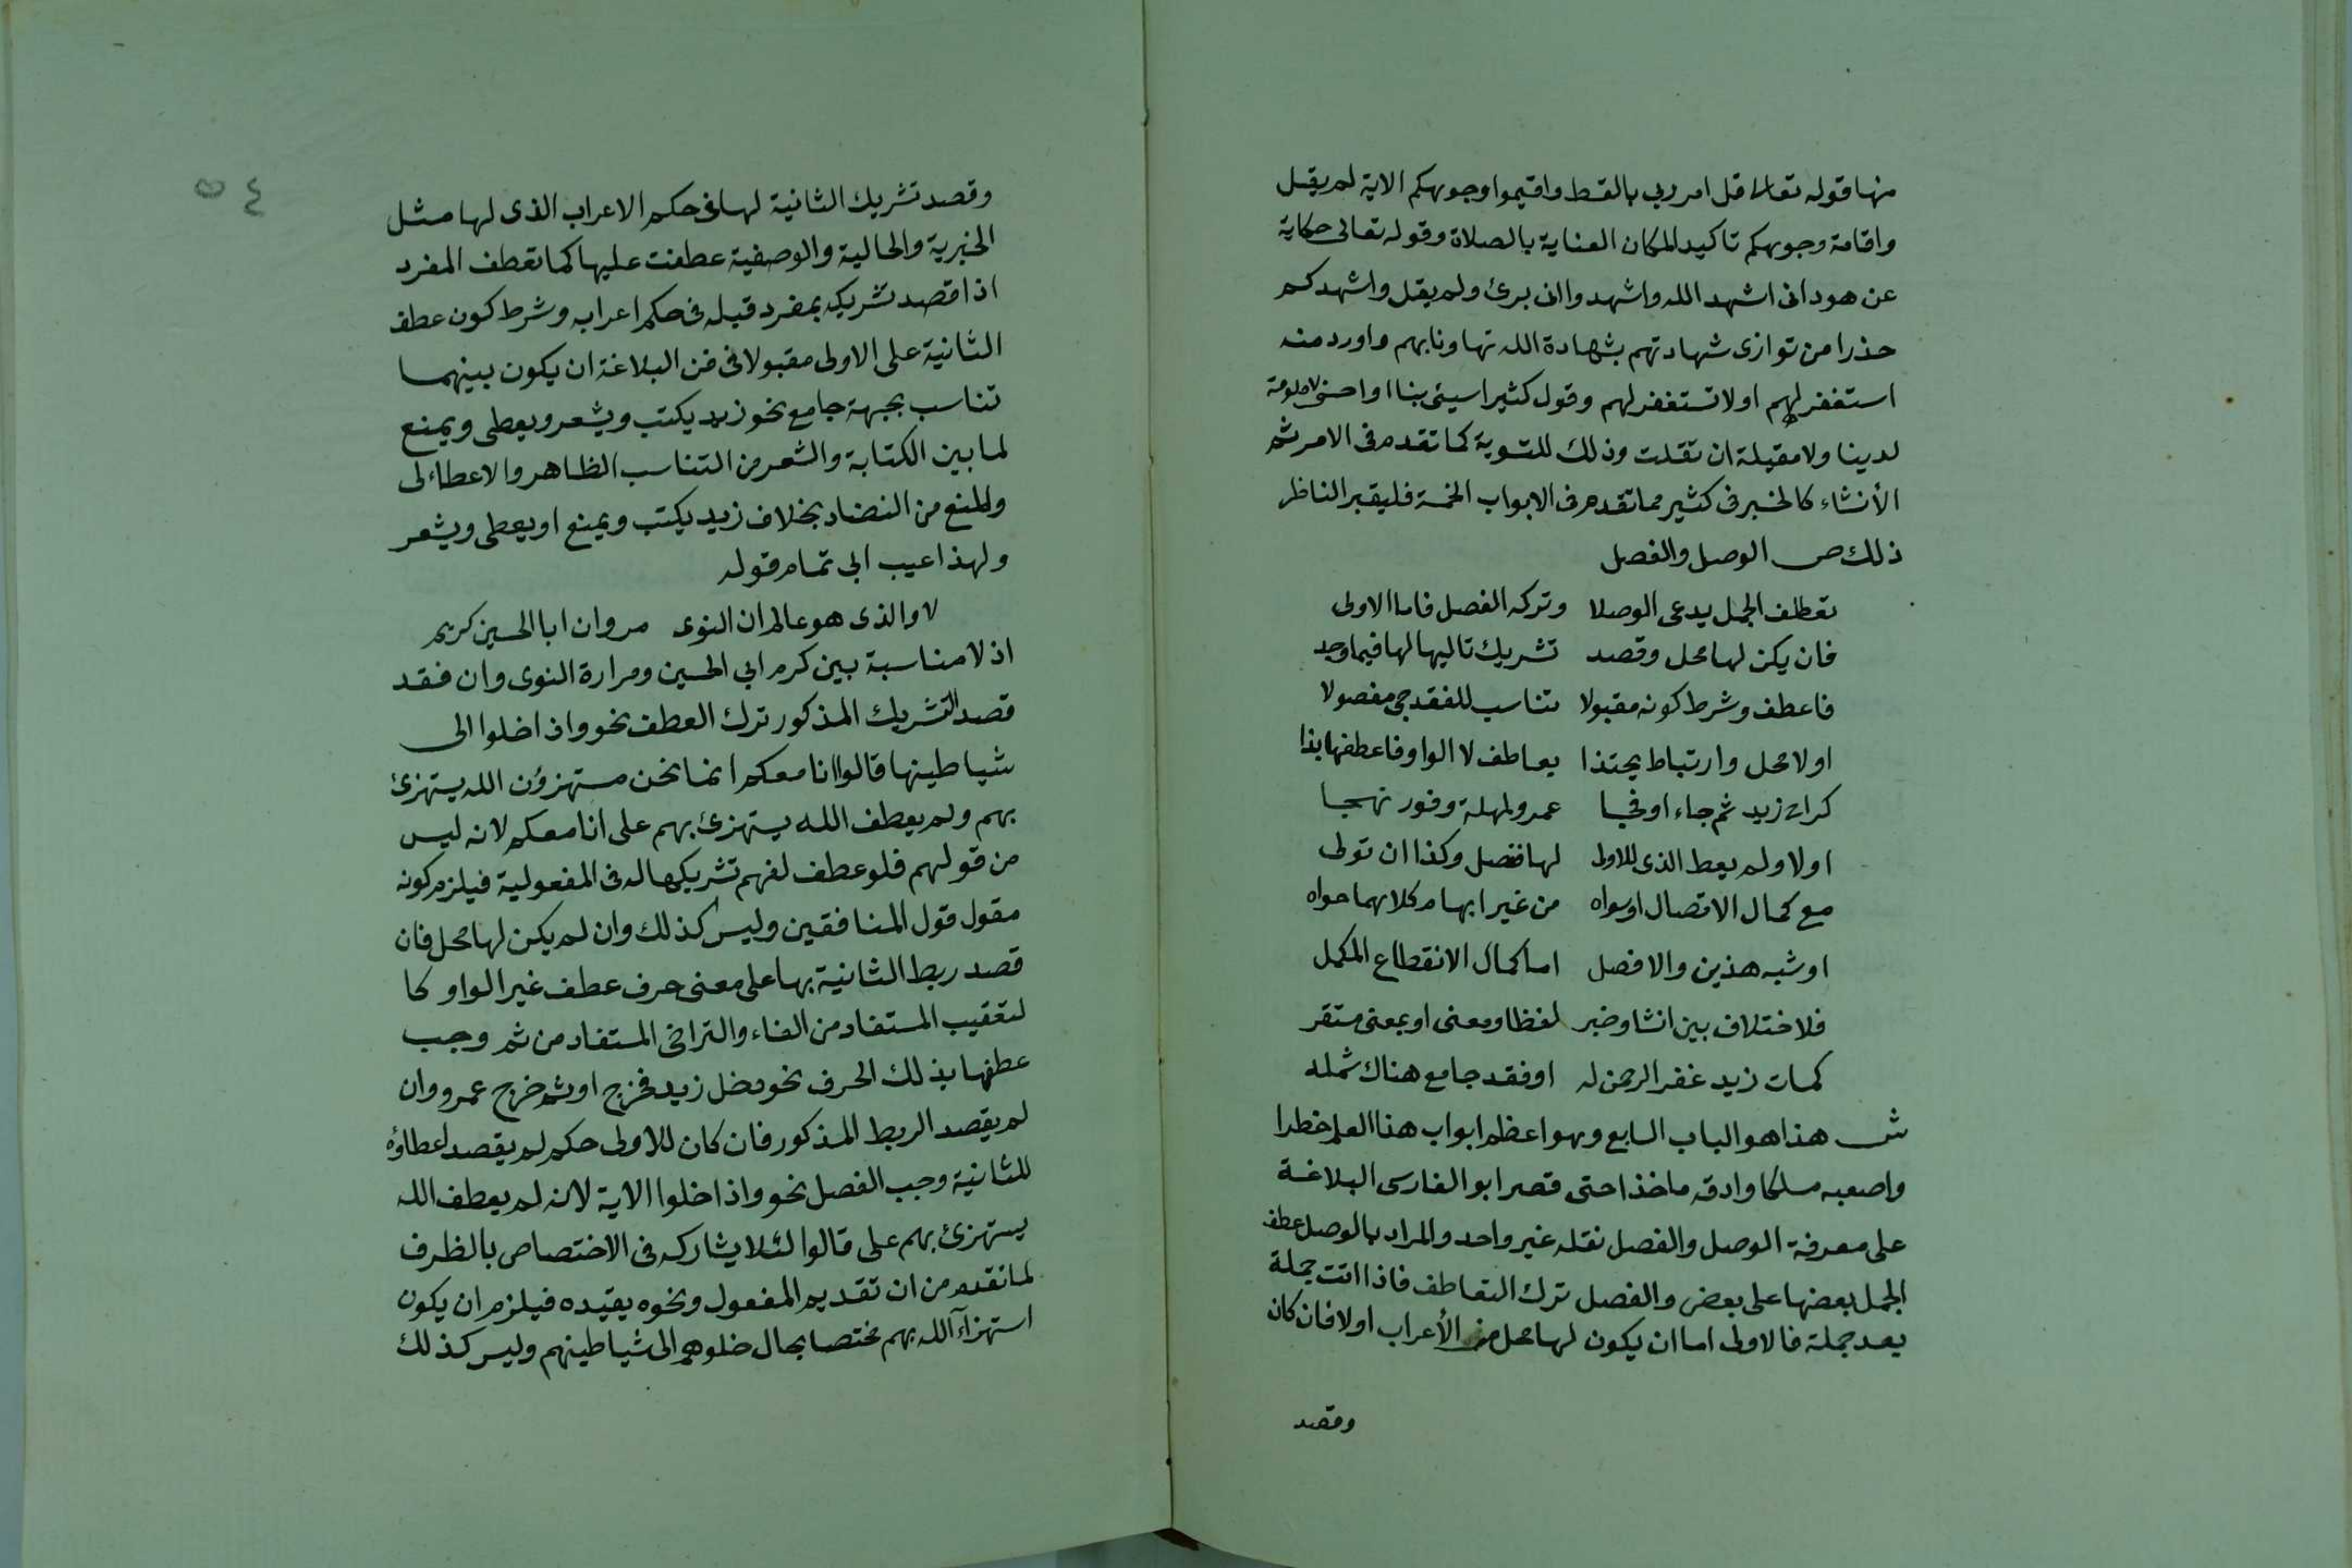 منها قوله تعالى قل امر ربي بالقسط واقيموا وجوهكم الاية لم يقل
واقامة وجوهكم تاكيدا لمكان العناية بالصلاة وقوله تعالى حكاية
عن هود انى اشهد الله واشهدوا انى برئ ولم يقل واشهدكم
حذرا من توازى شهادتهم بشهادة الله تهاونا بهم واورد منه
استغفر لهم اولا تستغفر لهم وقول كثير اسيئى بنا او احسنى لا ملومة
لدينا ولا مقيلة ان تقلت وذلك للتسوية كما تقدم فى الامر ثم
الأنشاء كالخبر فى كثير مما تقدم فى الابواب الخمسة فليعتبر الناظر
ذلك ص الوصل والفصل
تعطلف الجمل يدعى الوصلا وتركه الفصل فاما الاولى
فان يكن لها محل وقصد تشريك تاليها لها فيما وجد
فاعطف وشرط كونه مقبولا تناسب للفقد جى مفصولا
اولا محل وارتباط يحتذا بعاطف لا الواو فاعطفها بذا
كراح زيد ثم جاء او فجا عمرو لمهلة وفور نهجا
اولا ولم يعط الذى للاولى لها فتصل وكذا ان تولى
مع كمال الاتصال او سواه من غير ابهام كلاهما حواه
او شبه هذين والا فصل اما كمال الانقطاع المكمل
فلاختلاف بين انشا وخبر لفظا ومعنى او بمعنى مستقر
كمات زيد غفر الرحمن له او فقد جامع هناك شمله
ش هذا هو الباب السابع وهو اعظم ابواب هذا العلم خطرا
واصعبه مسلكا وادقه ماخذا حتى قصر ابو الفارسى البلاغة
على معرفة الوصل والفصل نقله غير واحد والمراد بالوصل عطف
الجمل بعضها على بعض والفصل ترك التعاطف فاذا اتت جملة
بعد جملة فالاولى اما ان يكون لها محل من الأعراب اولا فان كان
وقصد
٥٤
وقصد تشريك الثانية لها فى حكم الاعراب الذى لها مثل
الخبرية والحالية والوصفية عطفت عليها كما تعطف المفرد
اذا قصد تشريكه بمفرد قبله فى حكم اعرابه وشرط كون عطف
الثانية على الاولى مقبولا فى فن البلاغة ان يكون بينهما
تناسب بجهة جامع نحو زيد يكتب ويشعر ويعطى ويمنع
لما بين الكتابة والشعر من التناسب الظاهر والاعطاء لى
والمنع من التضاد بخلاف زيد يكتب ويمنع او يعطى ويشعر
ولهذا عيب ابى تمام قوله
لا والذى هو عالم ان النوى مر وان ابا الحسين كريم
اذ لا مناسبة بين كرم ابي الحسين ومرارة النوى وان فقد
قصد التشريك المذكور ترك العطف نحو واذا خلوا الى
شياطينها قالوا انا معكم انما نحن مستهزؤن الله يستهزئ
بهم ولم يعطف الله يستهزئ بهم على انا معكم لانه ليس
من قولهم فلو عطف لفهم تشريكها له فى المفعولية فيلزم كونه
مقول قول المنافقين وليس كذلك وان لم يكن لها محل فان
قصد ربط الثانية بها على معنى حرف عطف غير الواو كا
لتعقيب المستفاد من الفاء والتراخى المستفاد من ثم وجب
عطفها بذلك الحرف نحو دخل زيد فخرج او ثم خرج عمرو وان
لم يقصد الربط المذكور فان كان للاولى حكم لم يقصد اعطاؤه
للثانية وجب الفصل نحو واذا خلوا الاية لانه لم يعطف الله
يستهزئ بهم على قالوا لئلا يشاركه فى الاختصاص بالظرف
لما تقدم من ان تقديم المفعول ونحوه يقيده فيلزم ان يكون
استهزآء الله بهم مختصا بحال خلوهم الى شياطينهم وليس كذلك